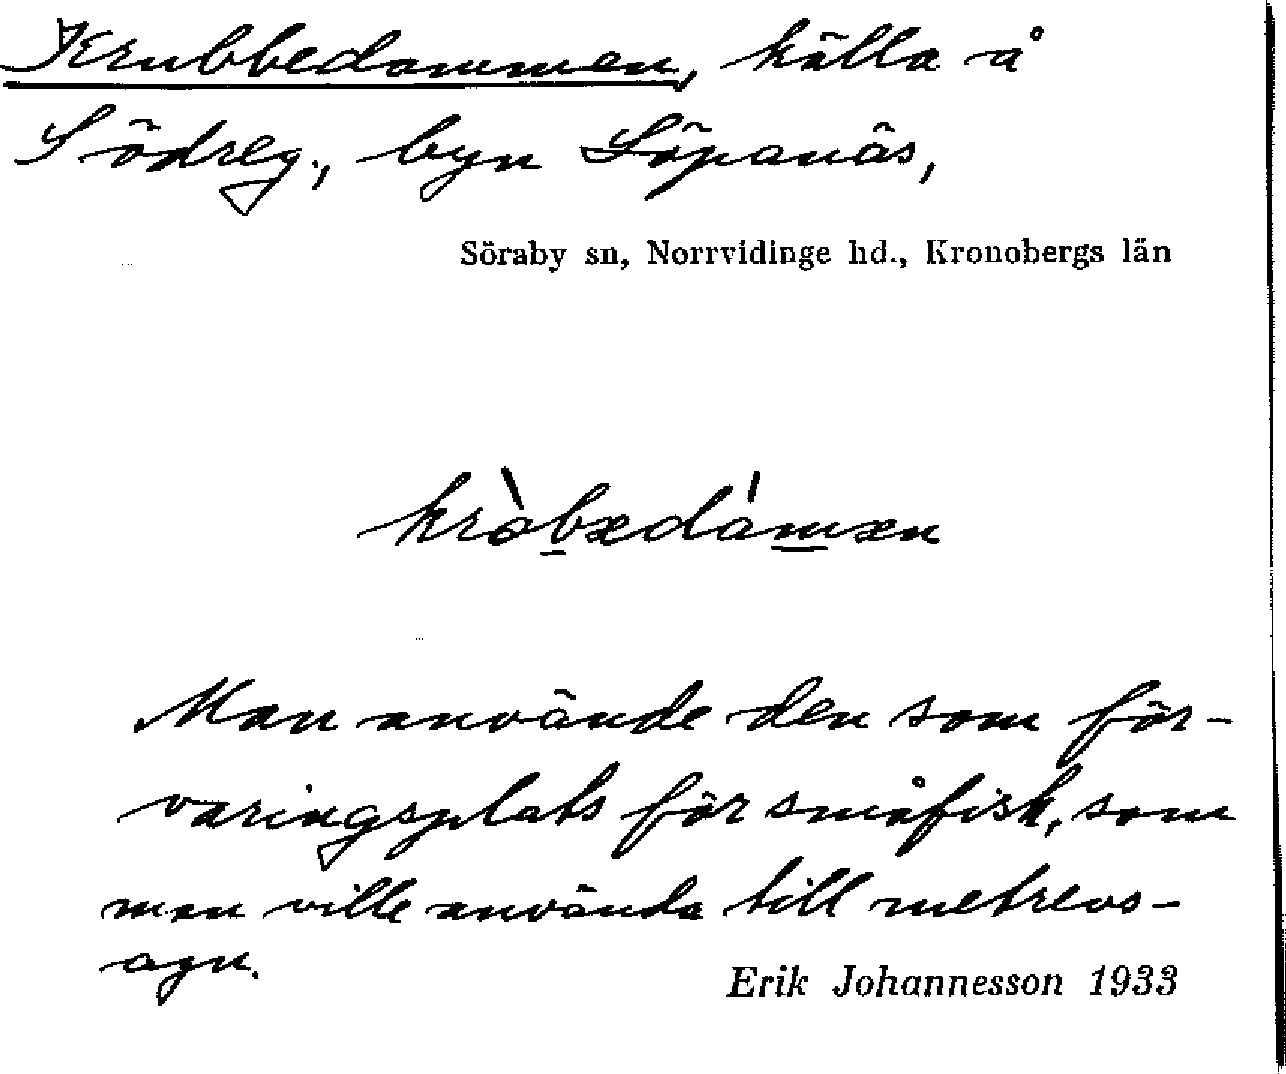 Krubbedammen, källa å
Södreg., byn Löpanäs,
Söraby sn, Norrvidinge hd., Kronobergs län
kròbædámæn
Man använde den som för-
varingsplats för småfisk, som
man ville använda till metrevs-
agn.
Erik Johannesson 1933